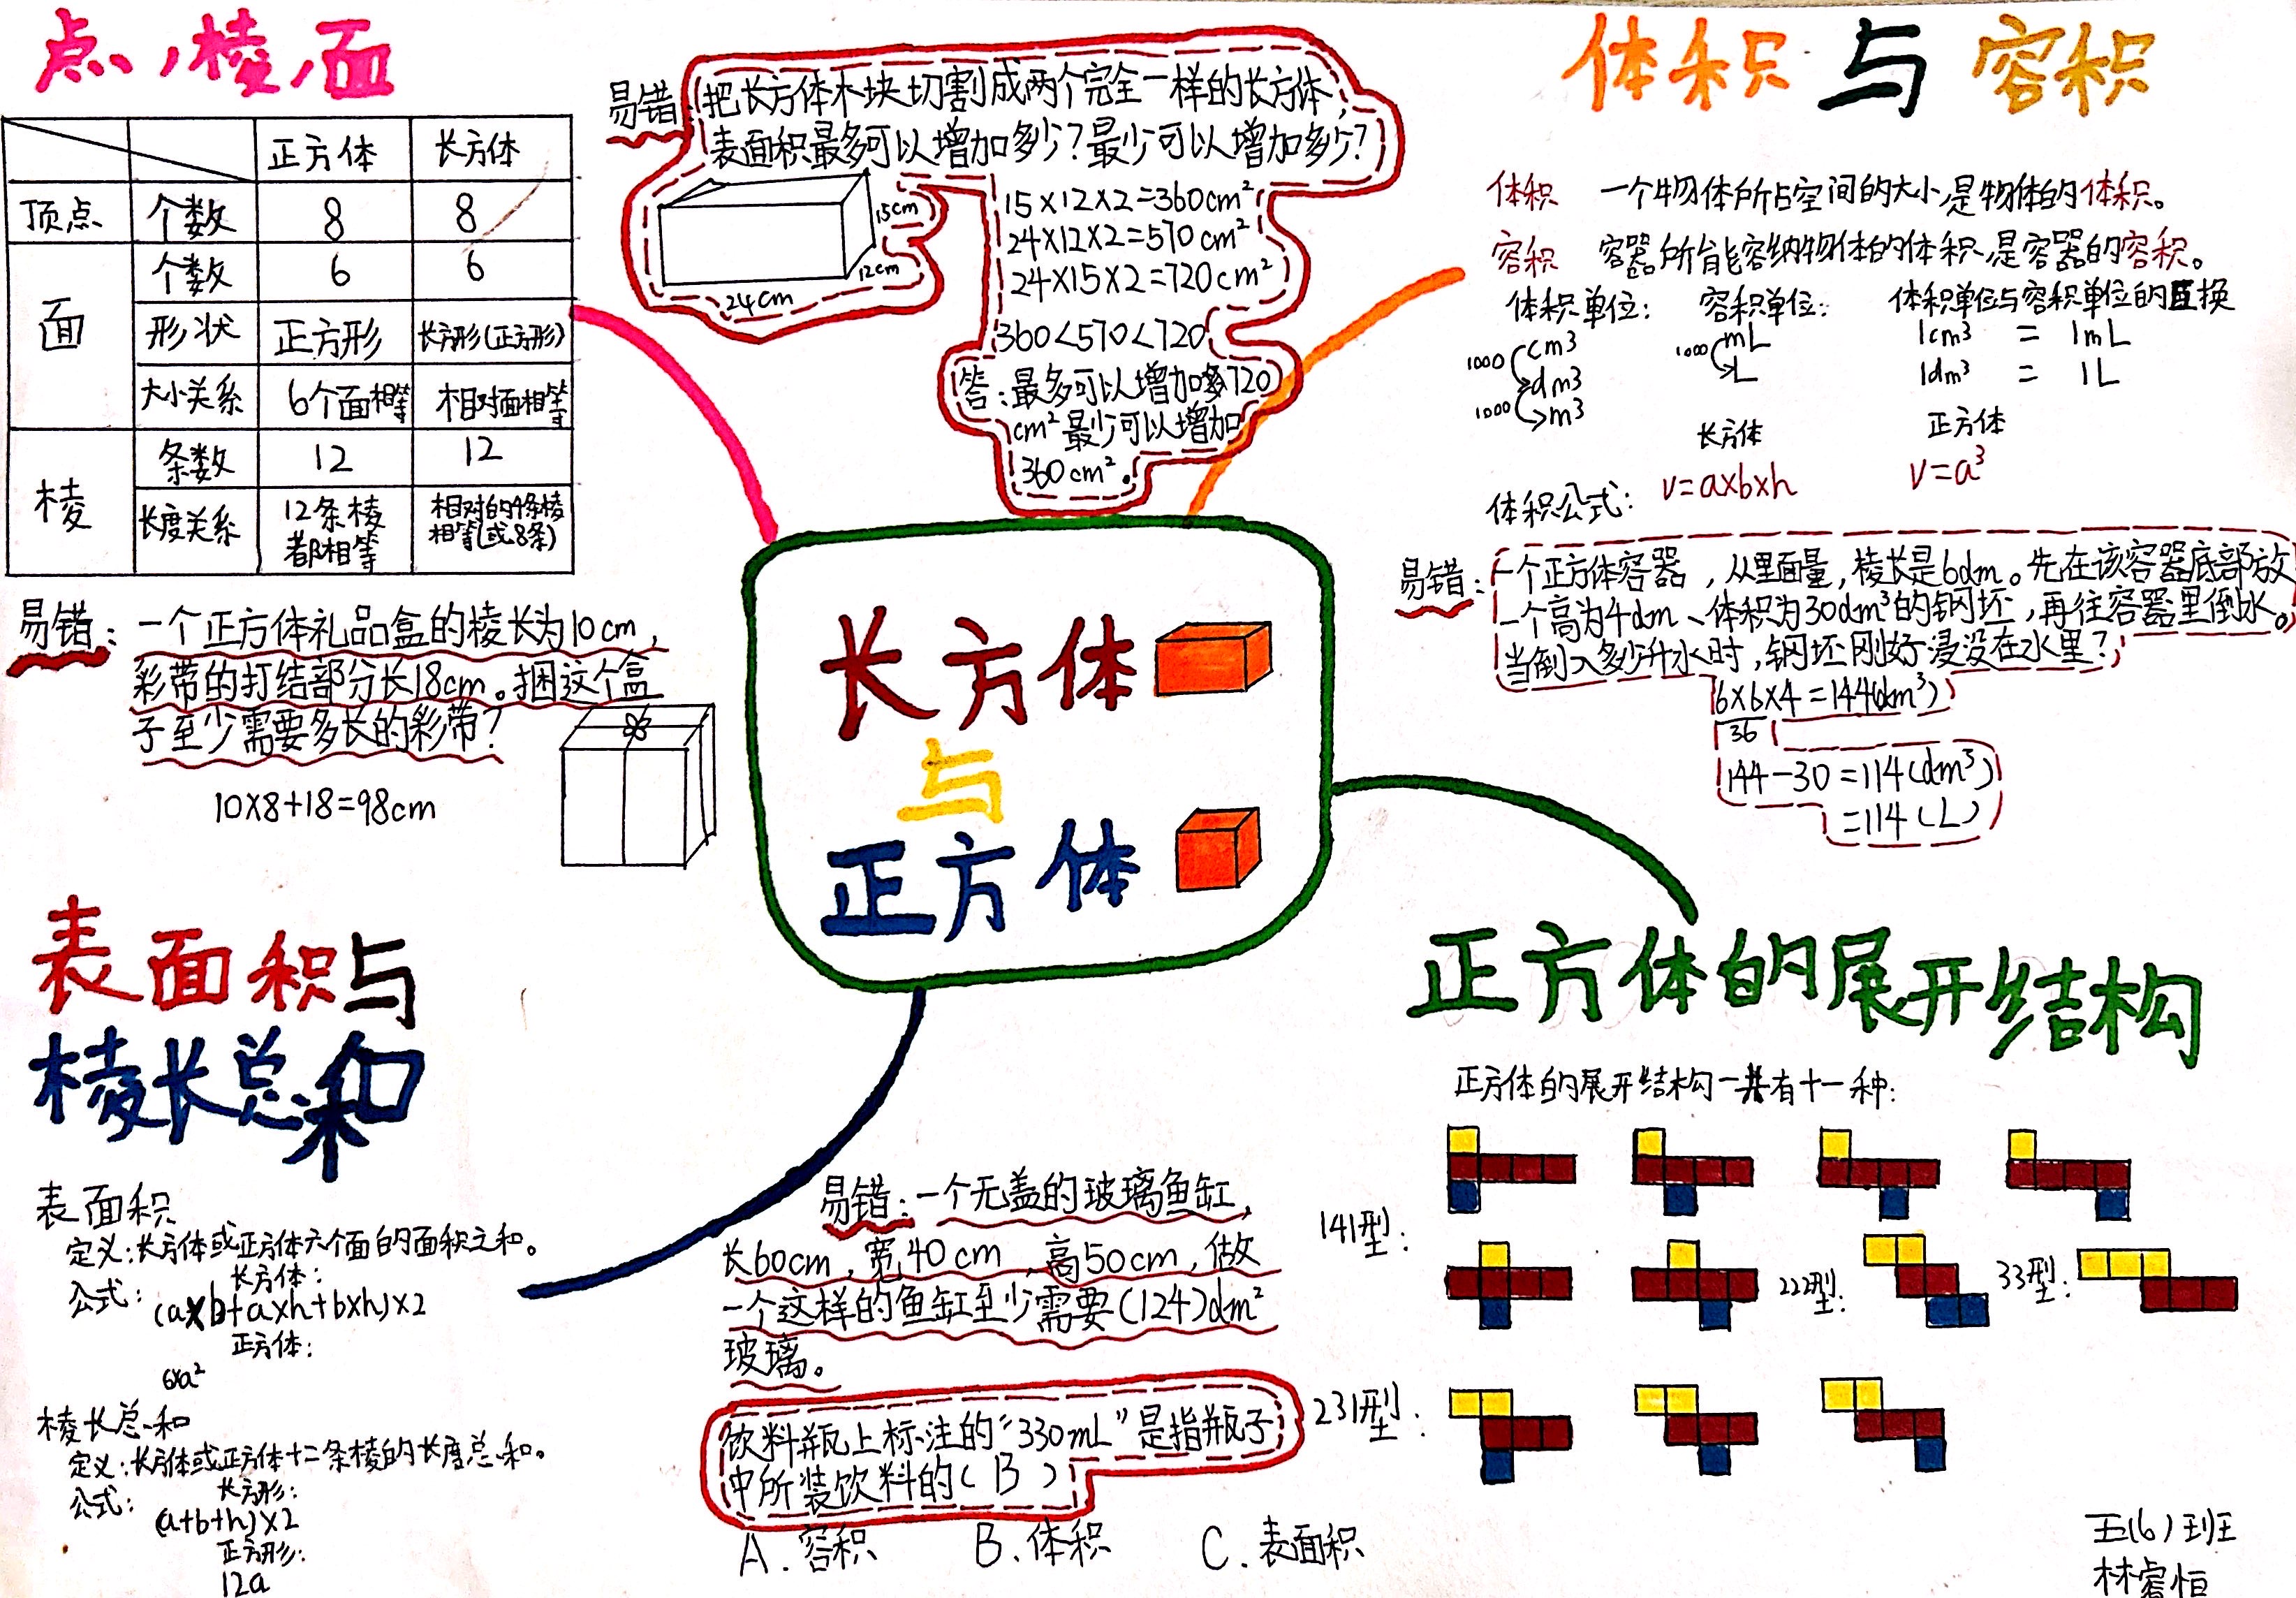 点、棱、面
正方体 长方体
顶点 个数 8 8
面 个数 6 6
形状 正方形 长方形(正方形)
大小关系 6个面相等 相对面相等
棱 条数 12 12
长度关系 12条棱都相等 相对的4条棱相等(或8条)
易错：一个正方体礼品盒的棱长为10cm，
彩带的打结部分长18cm。捆这个盒
子至少需要多长的彩带？
10×8+18=98cm
易错：把长方体木块切割成两个完全一样的长方体，
表面积最多可以增加多少？最少可以增加多少？
15cm
12cm
24cm
15×12×2=360cm²
24×12×2=570cm²
24×15×2=720cm²
360<570<720
答：最多可以增加多720
cm²最少可以增加
360cm².
体积与容积
体积 一个物体所占空间的大小是物体的体积。
容积 容器所能容纳物体的体积是容器的容积。
体积单位： 容积单位： 体积单位与容积单位的互换
1000 cm³ 1000 mL 1cm³ = 1mL
dm³ L 1dm³ = 1L
1000 m³
长方体 正方体
体积公式： V=a×b×h V=a³
易错：一个正方体容器，从里面量，棱长是6dm。先在该容器底部放
一个高为4dm、体积为30dm³的钢坯，再往容器里倒水。
当倒入多少升水时，钢坯刚好浸没在水里？
6×6×4=144(dm³)
36
144-30=114(dm³)
=114(L)
长方体
与
正方体
表面积与
棱长总和
表面积
定义：长方体或正方体六个面的面积之和。
长方体：
公式：(a×b+a×h+b×h)×2
正方体：
6×a²
棱长总和
定义：长方体或正方体十二条棱的长度总和。
长方形：
公式：(a+b+h)×2
正方形：
12a
易错：一个无盖的玻璃鱼缸，
长60cm，宽40cm，高50cm，做
一个这样的鱼缸至少需要(124)dm²
玻璃。
饮料瓶上标注的“330mL”是指瓶子
中所装饮料的(B)
A.容积 B.体积 C.表面积
正方体的展开结构
正方体的展开结构一共有十一种：
141型：
222型： 33型：
231型：
五(6)班
林睿恒